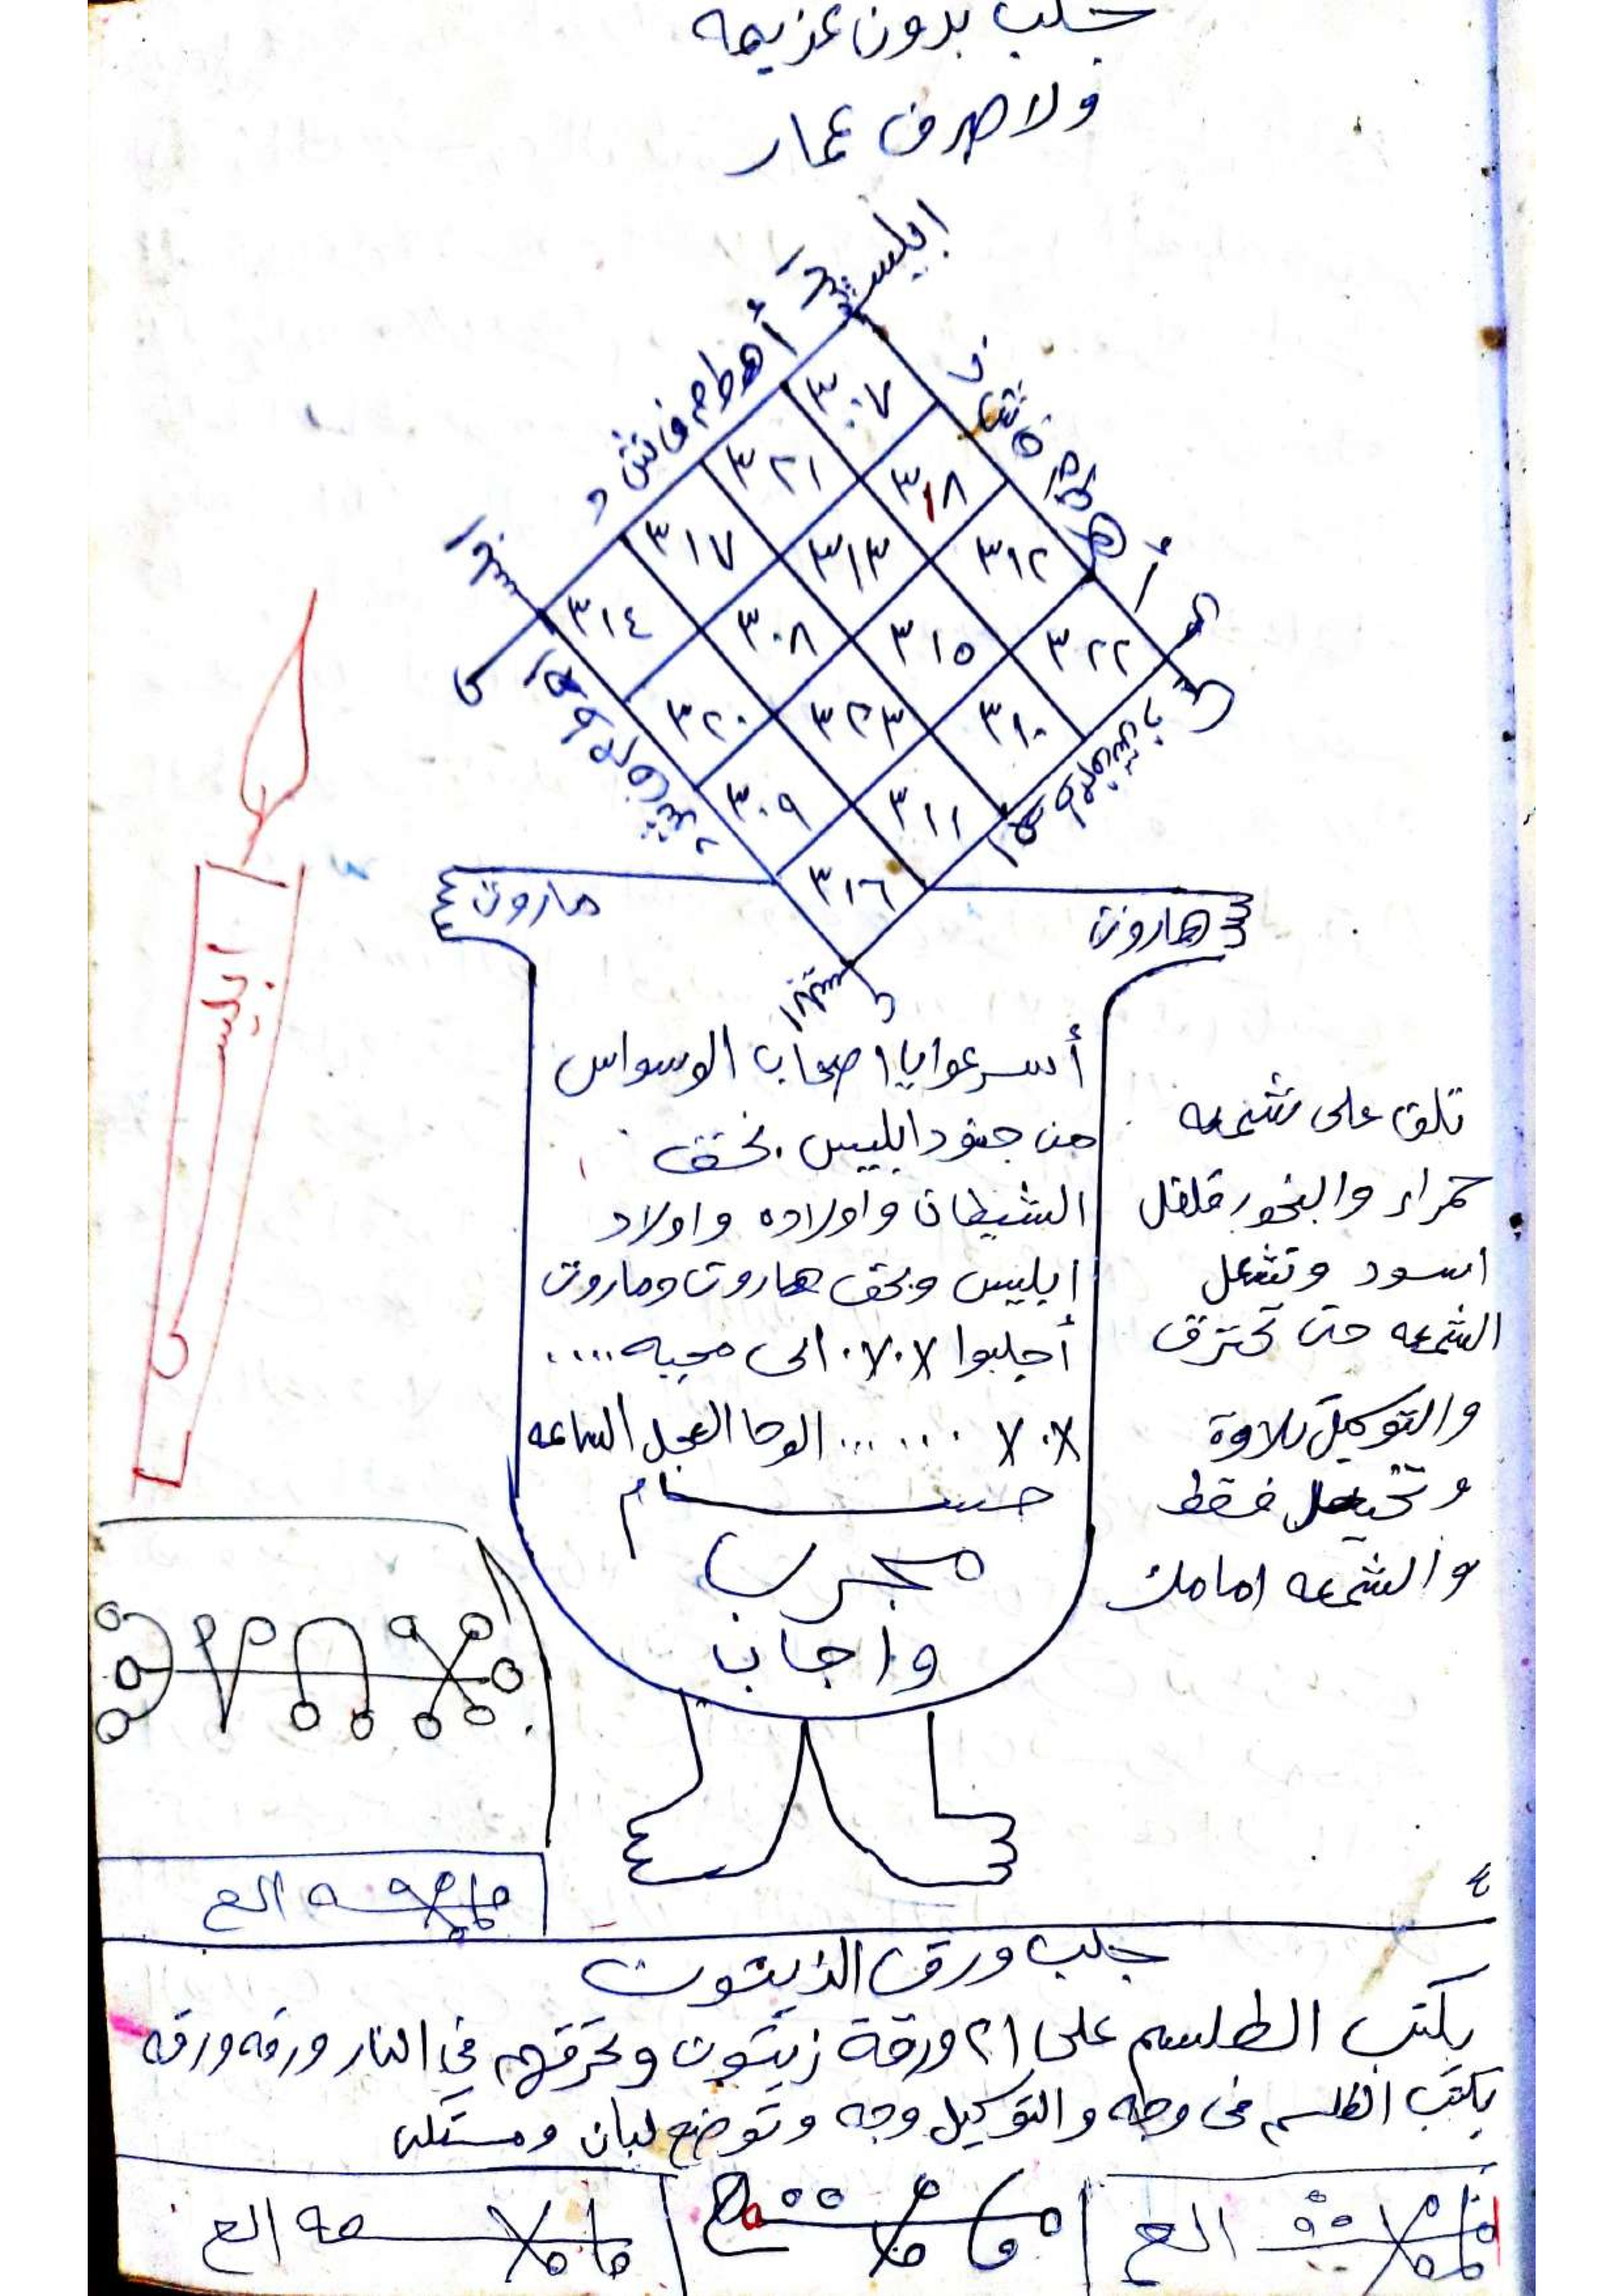 جلب بدون عزيمه
ولا صرف عمار
ابليس
أهطم فش د
٣٠٧
٣٢١ ٣١٨
٣١٧ ٣١٣ ٣١٢
٣١٤ ٣٠٨ ٣١٥ ٣٢٢
٣٢٠ ٣٢٣ ٣١٠
٣٠٩ ٣١١
٣١٦
ماروت
هاروت
ابليس
أسرعوا يا اصحاب الوسواس
من جنود ابليس بحق
الشيطان واولاده واولاد
ابليس وبحق هاروت وماروت
أجلبوا ٧٠٧٠ الى محبه ....
٧٠٧ ...... الوحا العجل الساعه
مجرب
واجاب
تلق على شمعه
حمراء والبخور فلفل
اسود وتشعل
الشمعه حتى تحترق
والتوكيل تلاوة
فقط
والشمعه امامك
٤
مه الع
جلب ورق الزيتون
يكتب الطلسم على ٢١ ورقة زيتون وتحرقهم في النار ورقه ورقه
يكتب الطلسم فى وجه والتوكيل وجه وتوضع لبان ومستكى
الع
مه الع